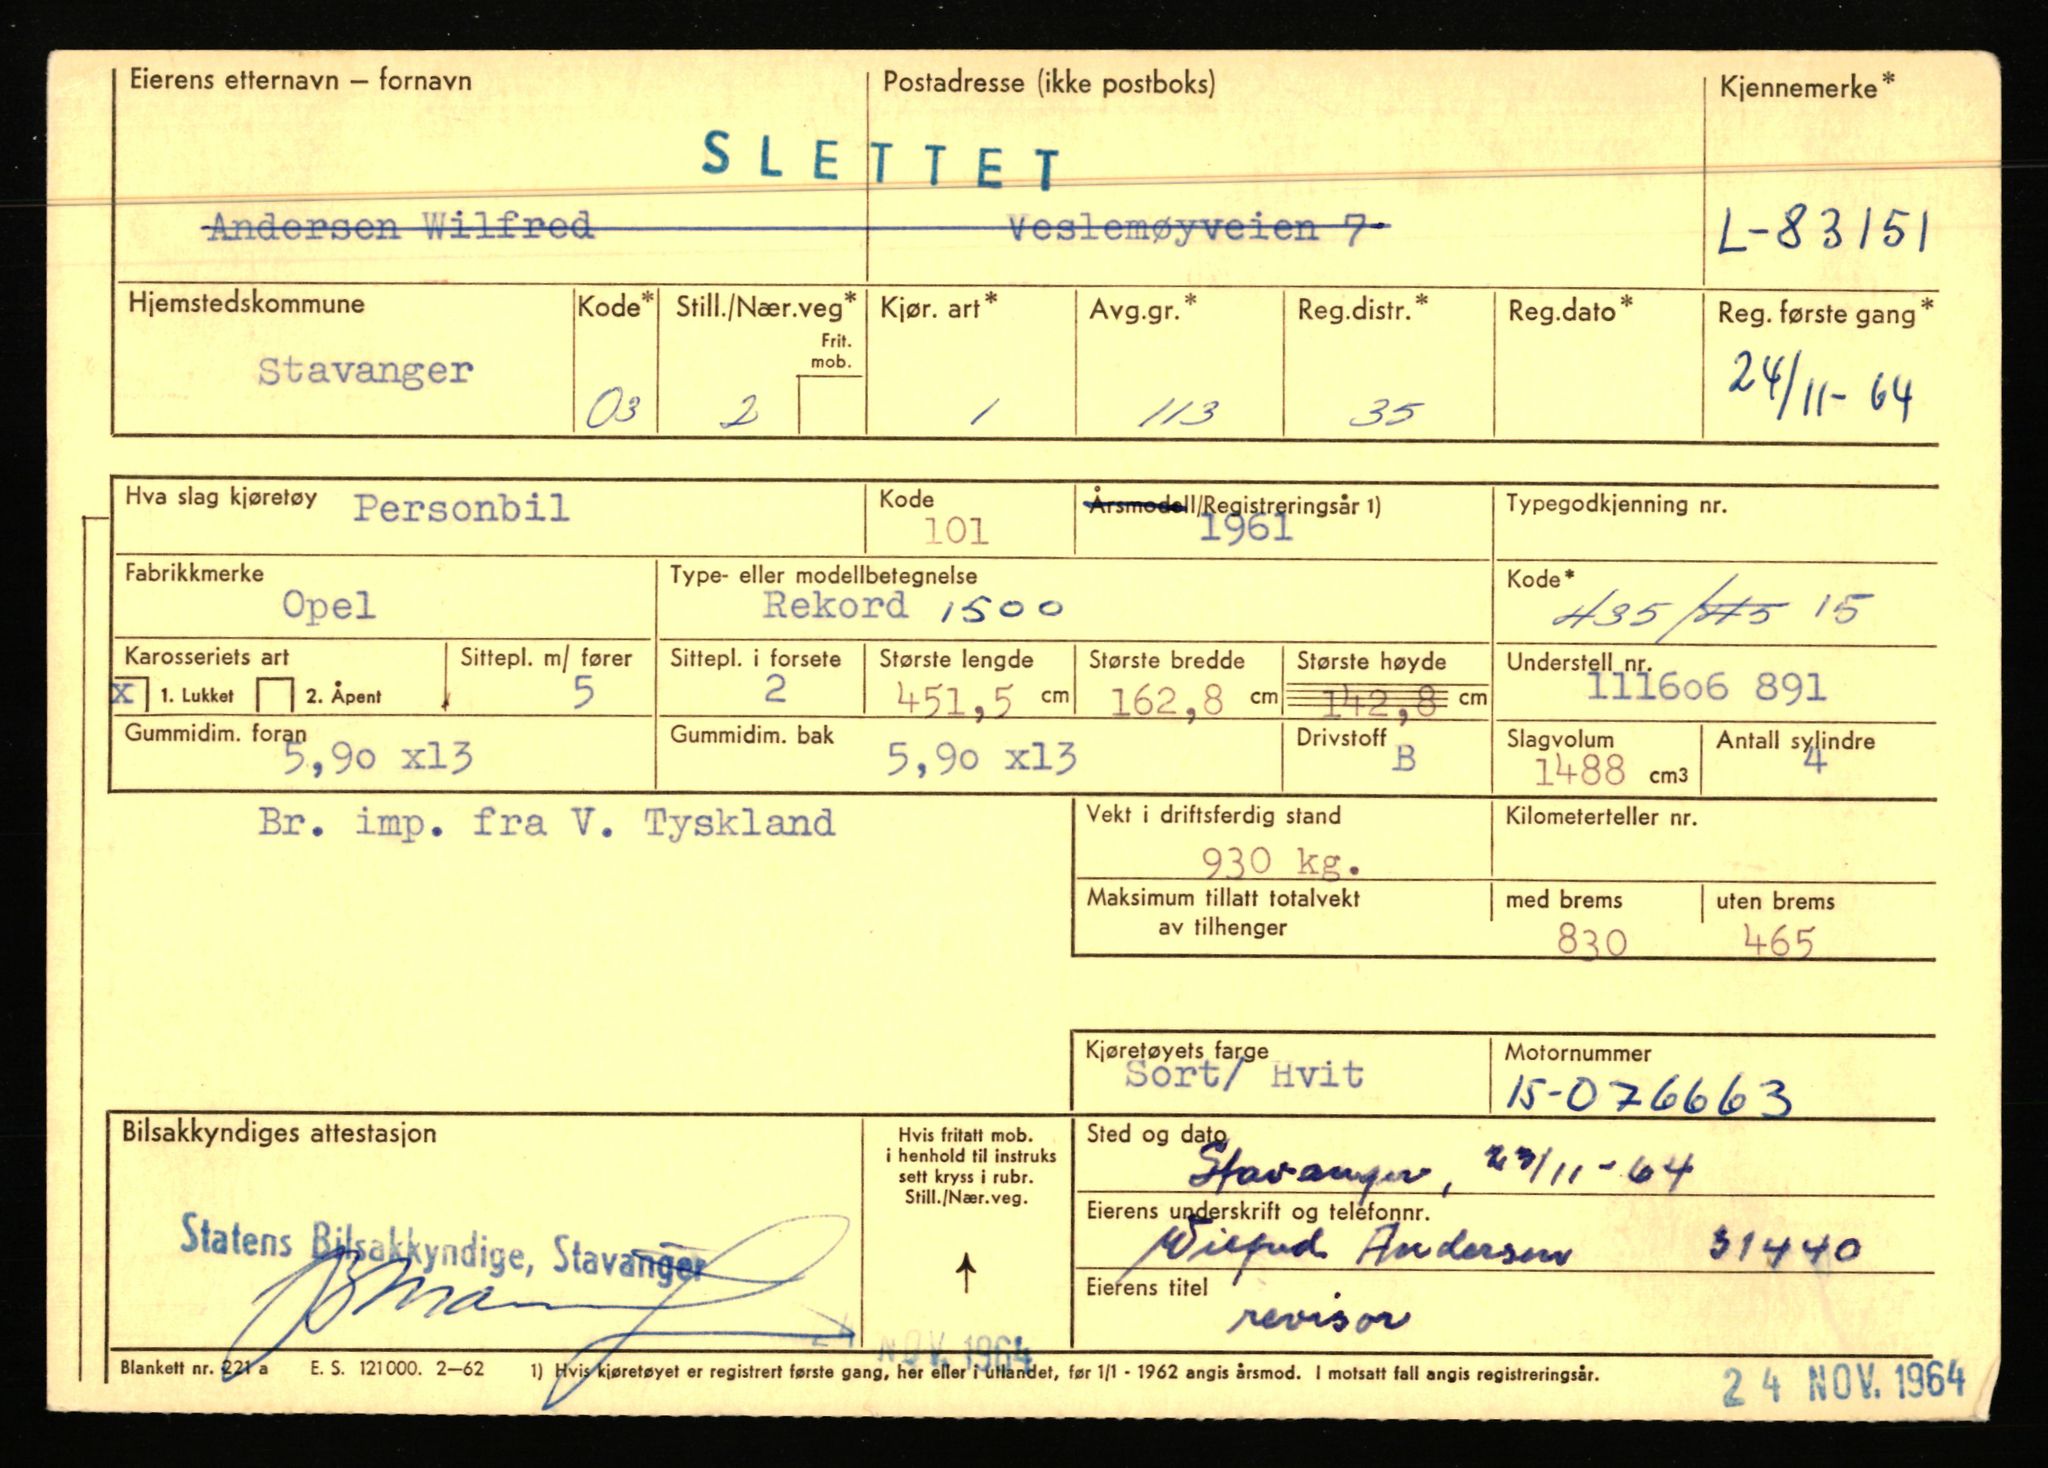 Eierens etternavn – fornavn Postadresse (ikke postboks) Kjennemerke*
SLETTET
Andersen Wilfred Veslemøyveien 7. L-83151
Hjemstedskommune Kode* Still./Nær.veg* Kjør. art* Avg.gr.* Reg.distr.* Reg.dato* Reg. første gang*
Frit. mob.
Stavanger 03 2 1 113 35 24/11-64
Hva slag kjøretøy Personbil Kode 101 Årsmodell/Registreringsår 1) 1961 Typegodkjenning nr.
Fabrikkmerke Type- eller modellbetegnelse Kode*
Opel Rekord 1500 435/445 15
Karosseriets art Sittepl. m/ fører Sittepl. i forsete Største lengde Største bredde Største høyde Understell nr.
x 1. Lukket 2. Åpent 5 2 451,5 cm 162,8 cm 142,8 cm 111606 891
Gummidim. foran Gummidim. bak Drivstoff Slagvolum Antall sylindre
5,90 x13 5,90 x13 B 1488 cm3 4
Br. imp. fra V. Tyskland
Vekt i driftsferdig stand Kilometerteller nr.
930 kg.
Maksimum tillatt totalvekt av tilhenger med brems uten brems
830 465
Kjøretøyets farge Motornummer
Sort/ Hvit 15-076663
Bilsakkyndiges attestasjon
Hvis fritatt mob.
i henhold til instruks
sett kryss i rubr.
Still./Nær.veg.
Sted og dato
Stavanger, 23/11-64
Eierens underskrift og telefonnr.
Wilfred Andersen 31440
Statens Bilsakkyndige, Stavanger
Eierens titel
revisor
24 NOV. 1964
Blankett nr. 221 a E. S. 121000. 2–62 1) Hvis kjøretøyet er registrert første gang, her eller i utlandet, før 1/1 - 1962 angis årsmod. I motsatt fall angis registreringsår.
24 NOV. 1964